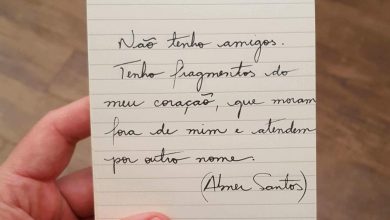 Não tenho amigos.
Tenho fragmentos do
meu coração, que moram
fora de mim e atendem
por outro nome.
(Abner Santos)